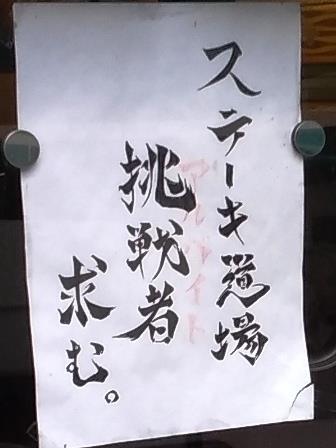 ステーキ道場
アルバイト
挑戦者
求む。